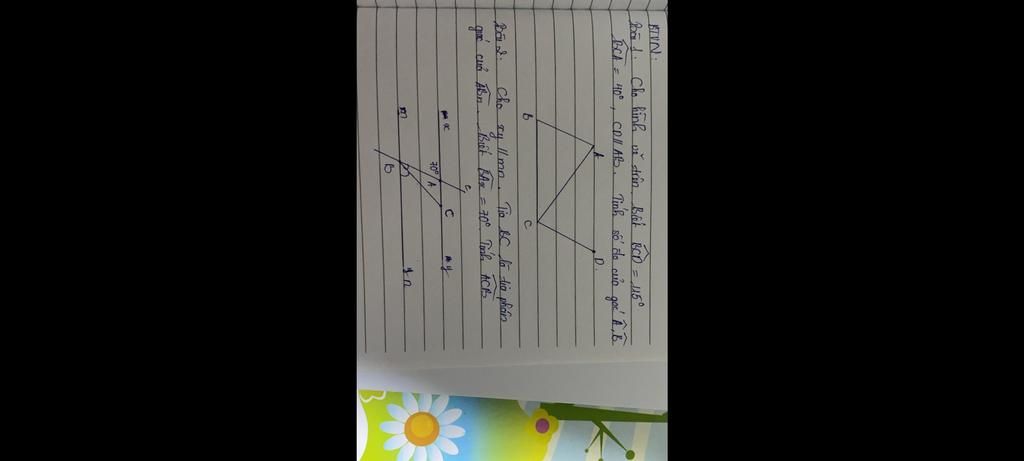 BTVN:
Bài 1: Cho hình vẽ trên. Biết BCD = 115°
BCA = 40°, CD // AB. Tính số đo của góc A, B.
A
D.
B
C
Bài 2: Cho xy // mn. Tia BC là tia phân
giác của ABn. Biết BAx = 70°. Tính ACB
c
x
70°
A
C
y
m
B
n